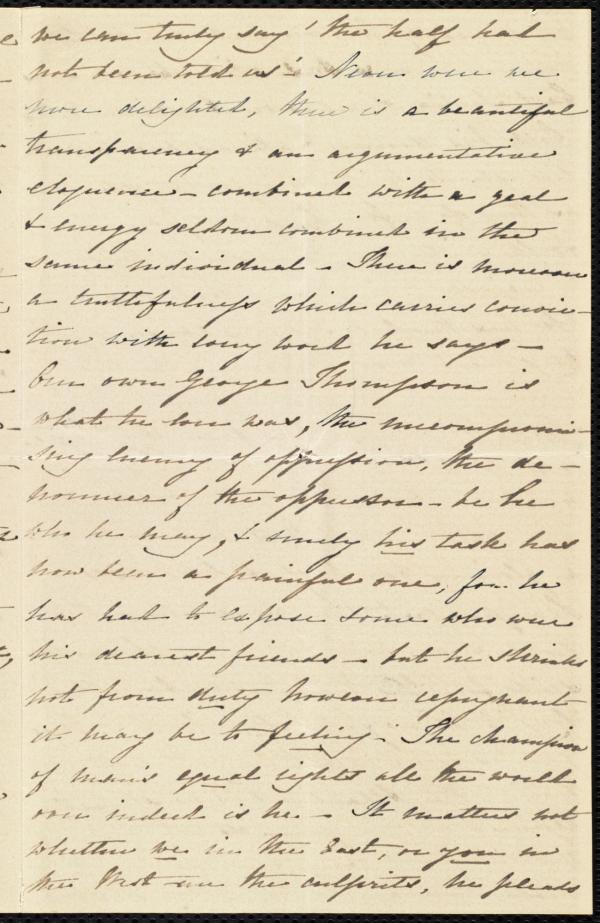 we can truly say 'the half had
not been told us'. Never were we
more delighted, there is a beautiful
transparency & an argumentative
eloquence - combined with a zeal
& energy seldom combined in the
same individual - There is moreover
a truthfulness which carries convic-
tion with every word he says -
Our own George Thompson is
what he ever was, the uncompromi-
sing enemy of oppression, the de-
nouncer of the oppressor - be he
who he may, & surely his task has
now been a painful one, for he
has had to expose some who were
his dearest friends - but he shrinks
not from duty however repugnant
it may be to feeling. The champion
of man's equal rights all the world
over indeed is he - It matters not
whether we in the East, or you in
the West are the culprits, he pleads